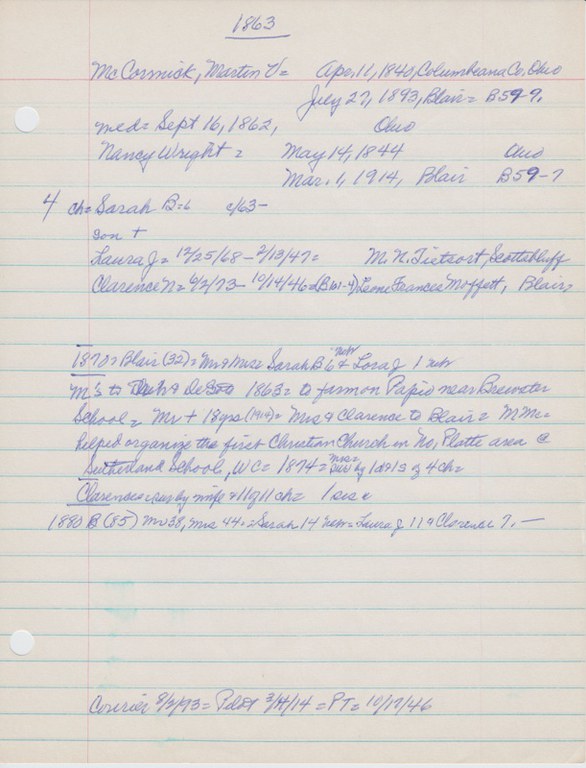 1863
McCormick, Martin V= Apr. 11, 1840, Columbeana Co. Ohio
July 27, 1893, Blair= B59-7.
med= Sept 16, 1862, Ohio
Nancy Wright= May 14, 1844 Ohio
Mar. 1, 1914, Blair B59-7
4 ch= Sarah B=6 c/63-
son +
Laura J= 12/25/68 - 2/13/47= M. N. Tietsort, Scottsbluff
Clarence N= 6/2/73 - 10/14/46=(B61-4) Leone Frances Moffett, Blair,
1870= Blair (32)= Mr & Mrs= Sarah B 6 + Lora J 1 Neb
M's to DeSoto 1863= to farm on Papio near Brewster
School= Mr + 18 yrs (1914)= Mrs & Clarence to Blair= M Mc=
helped organize the first Christian Church in No, Platte area @
Sutherland School, WC= 1874= Mrs= sur by 1 d & 1 s of 4 ch=
Clarence= sur by wife & 11 ch= 1 sis
1880 B (85) Mr 38, Mrs 44.= Sarah 14 Neb= Laura J 11 & Clarence 7. —
Courier 8/2/93= Pilot 3/ /14= PT= 10/17/46